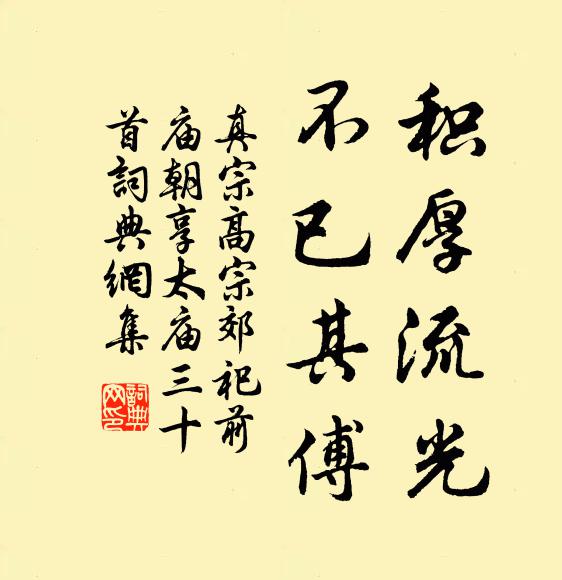 积厚流光
不已其傅
真宗高宗郊祀前
庙朝享太庙三十
首詞典網集
詞典網印